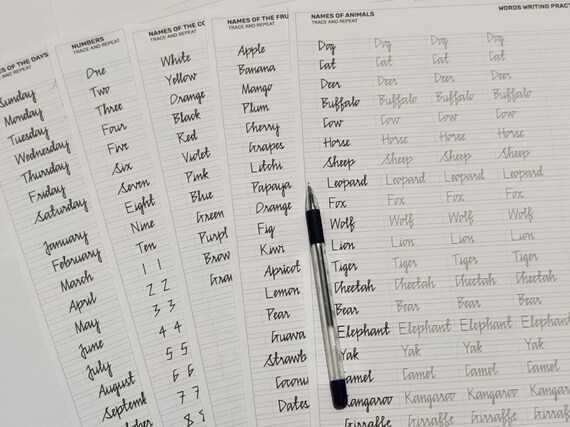 OF THE DAYS
TRACE AND REPEAT
Sunday
Monday
Tuesday
Wednesday
Thursday
Friday
Saturday
January
February
March
April
May
June
July
August
Septemb
NUMBERS
TRACE AND REPEAT
One
Two
Three
Four
Five
Six
Seven
Eight
Nine
Ten
1 1
2 2
3 3
4 4
5 5
6 6
7 7
8 8
NAMES OF THE CO
TRACE AND REPEAT
White
Yellow
Orange
Black
Red
Violet
Pink
Blue
Green
Purpl
Brow
Gra
NAMES OF THE FRU
TRACE AND REPEAT
Apple
Banana
Mango
Plum
Cherry
Grapes
Litchi
Papaya
Orange
Fig
Kiwi
Apricot
Lemon
Pear
Guava
Strawb
Coconu
Dates
NAMES OF ANIMALS WORDS WRITING PRACT
TRACE AND REPEAT
Dog Dog Dog Dog
Cat Cat Cat Cat
Deer Deer Deer Deer
Buffalo Buffalo Buffalo Buffalo
Cow Cow Cow Cow
Horse Horse Horse Horse
Sheep Sheep Sheep Sheep
Leopard Leopard Leopard Leopard
Fox Fox Fox Fox
Wolf Wolf Wolf Wolf
Lion Lion Lion Lion
Tiger Tiger Tiger Tiger
Cheetah Cheetah Cheetah Cheetah
Bear Bear Bear Bear
Elephant Elephant Elephant Elephant
Yak Yak Yak Yak
Camel Camel Camel Camel
Kangaroo Kangaroo Kangaroo Kangaroo
Giraffe Giraffe Giraffe Giraffe